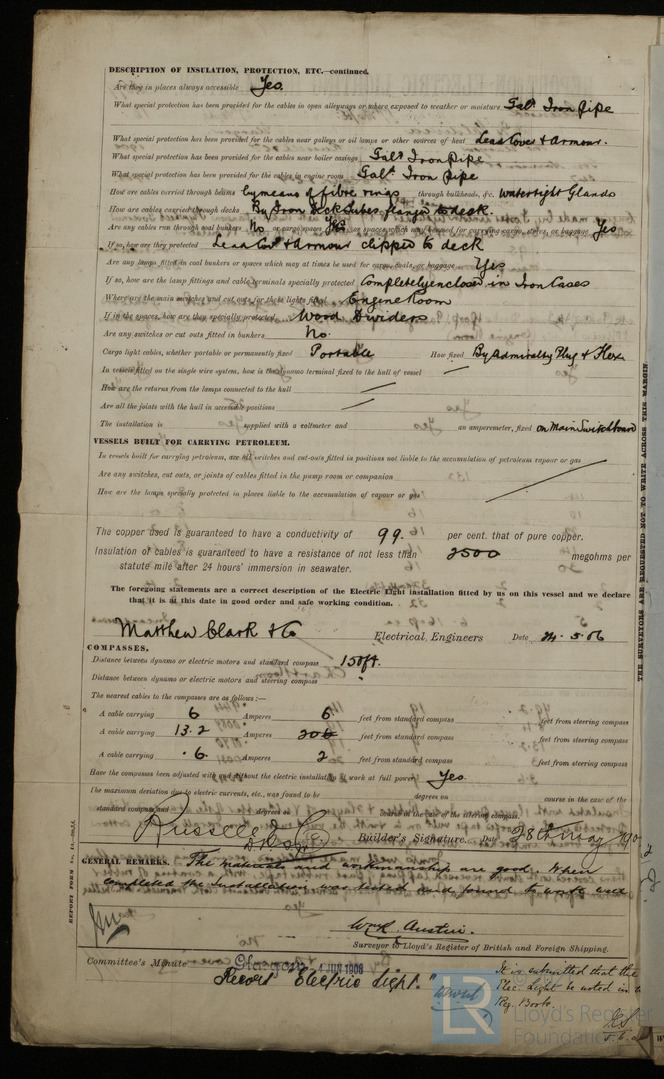 DESCRIPTION OF INSULATION, PROTECTION, ETC.—continued.
Are they in places always accessible Yes.
What special protection has been provided for the cables in open alleyways or where exposed to weather or moisture Galv Iron pipe
What special protection has been provided for the cables near galleys or oil lamps or other sources of heat Lead Cover & Armour.
What special protection has been provided for the cables near boiler casings Galv Iron Pipe
What special protection has been provided for the cables in engine room Galv Iron pipe
How are cables carried through beams by means of fibre rings through bulkheads, &c. Watertight Glands
How are cables carried through decks By Iron Deck tubes flanged to deck.
Are any cables run through coal bunkers No or cargo spaces Yes or spaces which may be used for carrying cargo, stores, or baggage Yes
If so, how are they protected Lead Cov & Armour clipped to deck
Are any lamps fitted in coal bunkers or spaces which may at times be used for cargo, coals, or baggage Yes
If so, how are the lamp fittings and cable terminals specially protected Completely enclosed in Iron Cases
Where are the main switches and cut outs for these lights fitted Engine Room
If in the spaces, how are they specially protected Wood Dividers
Are any switches or cut outs fitted in bunkers No.
Cargo light cables, whether portable or permanently fixed Portable How fixed By Admiralty Plug & Flex
In vessels fitted on the single wire system, how is the dynamo terminal fixed to the hull of vessel
How are the returns from the lamps connected to the hull
Are all the joints with the hull in accessible positions
The installation is supplied with a voltmeter and Yes an amperemeter, fixed on Main Switchboard
VESSELS BUILT FOR CARRYING PETROLEUM.
In vessels built for carrying petroleum, are all switches and cut-outs fitted in positions not liable to the accumulation of petroleum vapour or gas
Are any switches, cut outs, or joints of cables fitted in the pump room or companion
How are the lamps specially protected in places liable to the accumulation of vapour or gas
The copper used is guaranteed to have a conductivity of 99. per cent. that of pure copper.
Insulation of cables is guaranteed to have a resistance of not less than 2500 megohms per
statute mile after 24 hours' immersion in seawater.
The foregoing statements are a correct description of the Electric Light installation fitted by us on this vessel and we declare
that it is at this date in good order and safe working condition.
Matthew Clark & Co Electrical Engineers Date 24.5.06
COMPASSES.
Distance between dynamo or electric motors and standard compass 150ft.
Distance between dynamo or electric motors and steering compass
The nearest cables to the compasses are as follows:—
A cable carrying 6 Amperes 6 feet from standard compass feet from steering compass
A cable carrying 13.2 Amperes 20 feet from standard compass feet from steering compass
A cable carrying .6 Amperes 2 feet from standard compass feet from steering compass
Have the compasses been adjusted with and without the electric installation at work at full power Yes
The maximum deviation due to electric currents, etc., was found to be degrees on course in the case of the
standard compass and degrees on course in the case of the steering compass.
Russell & Co Builder's Signature. Date 28th May 190
GENERAL REMARKS. The materials and workmanship are good. When
completed the Installation was tested and found to work well
Wm Austin.
Surveyor to Lloyd's Register of British and Foreign Shipping.
Committee's Minute Glasgow 4 JUN 1906
Record "Electric Light."
It is submitted that the
Elec. Light be noted in
Reg. Book.
THE SURVEYORS ARE REQUESTED NOT TO WRITE ACROSS THIS MARGIN.
LR
Lloyd's Register
Foundation